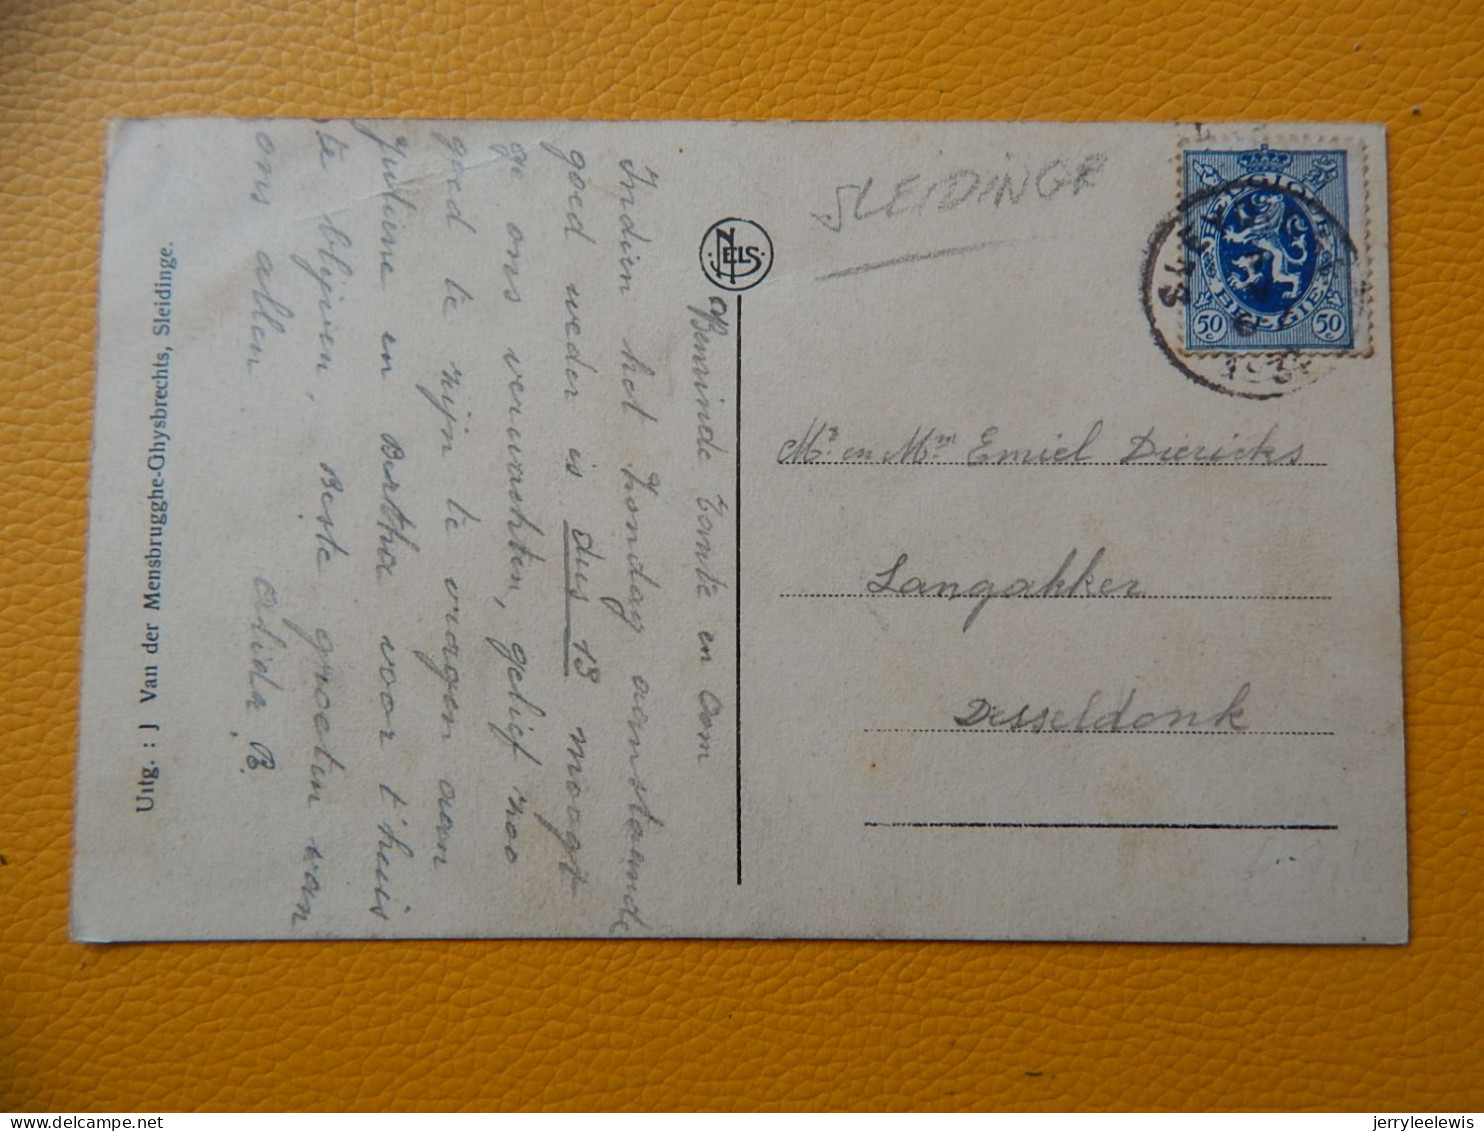 Beminde Tante en Oom
Indien het Zondag aanstaande
goed weder is dus 13 moogt
ge ons verwachten, gelief zoo
goed te zijn te vragen aan
Judiene en Bertha voor t'huis
te blijven, Beste groeten van
ons allen Alida B.
Uitg. : J Van der Mensbrugghe-Ghysbrechts, Sleidinge.
NELS
SLEIDINGE
BELGIQUE
BELGIE
50 c 50 c
Mr. en Mm Emiel Diericks
Langakker
Desseldonk
jerryleelewis